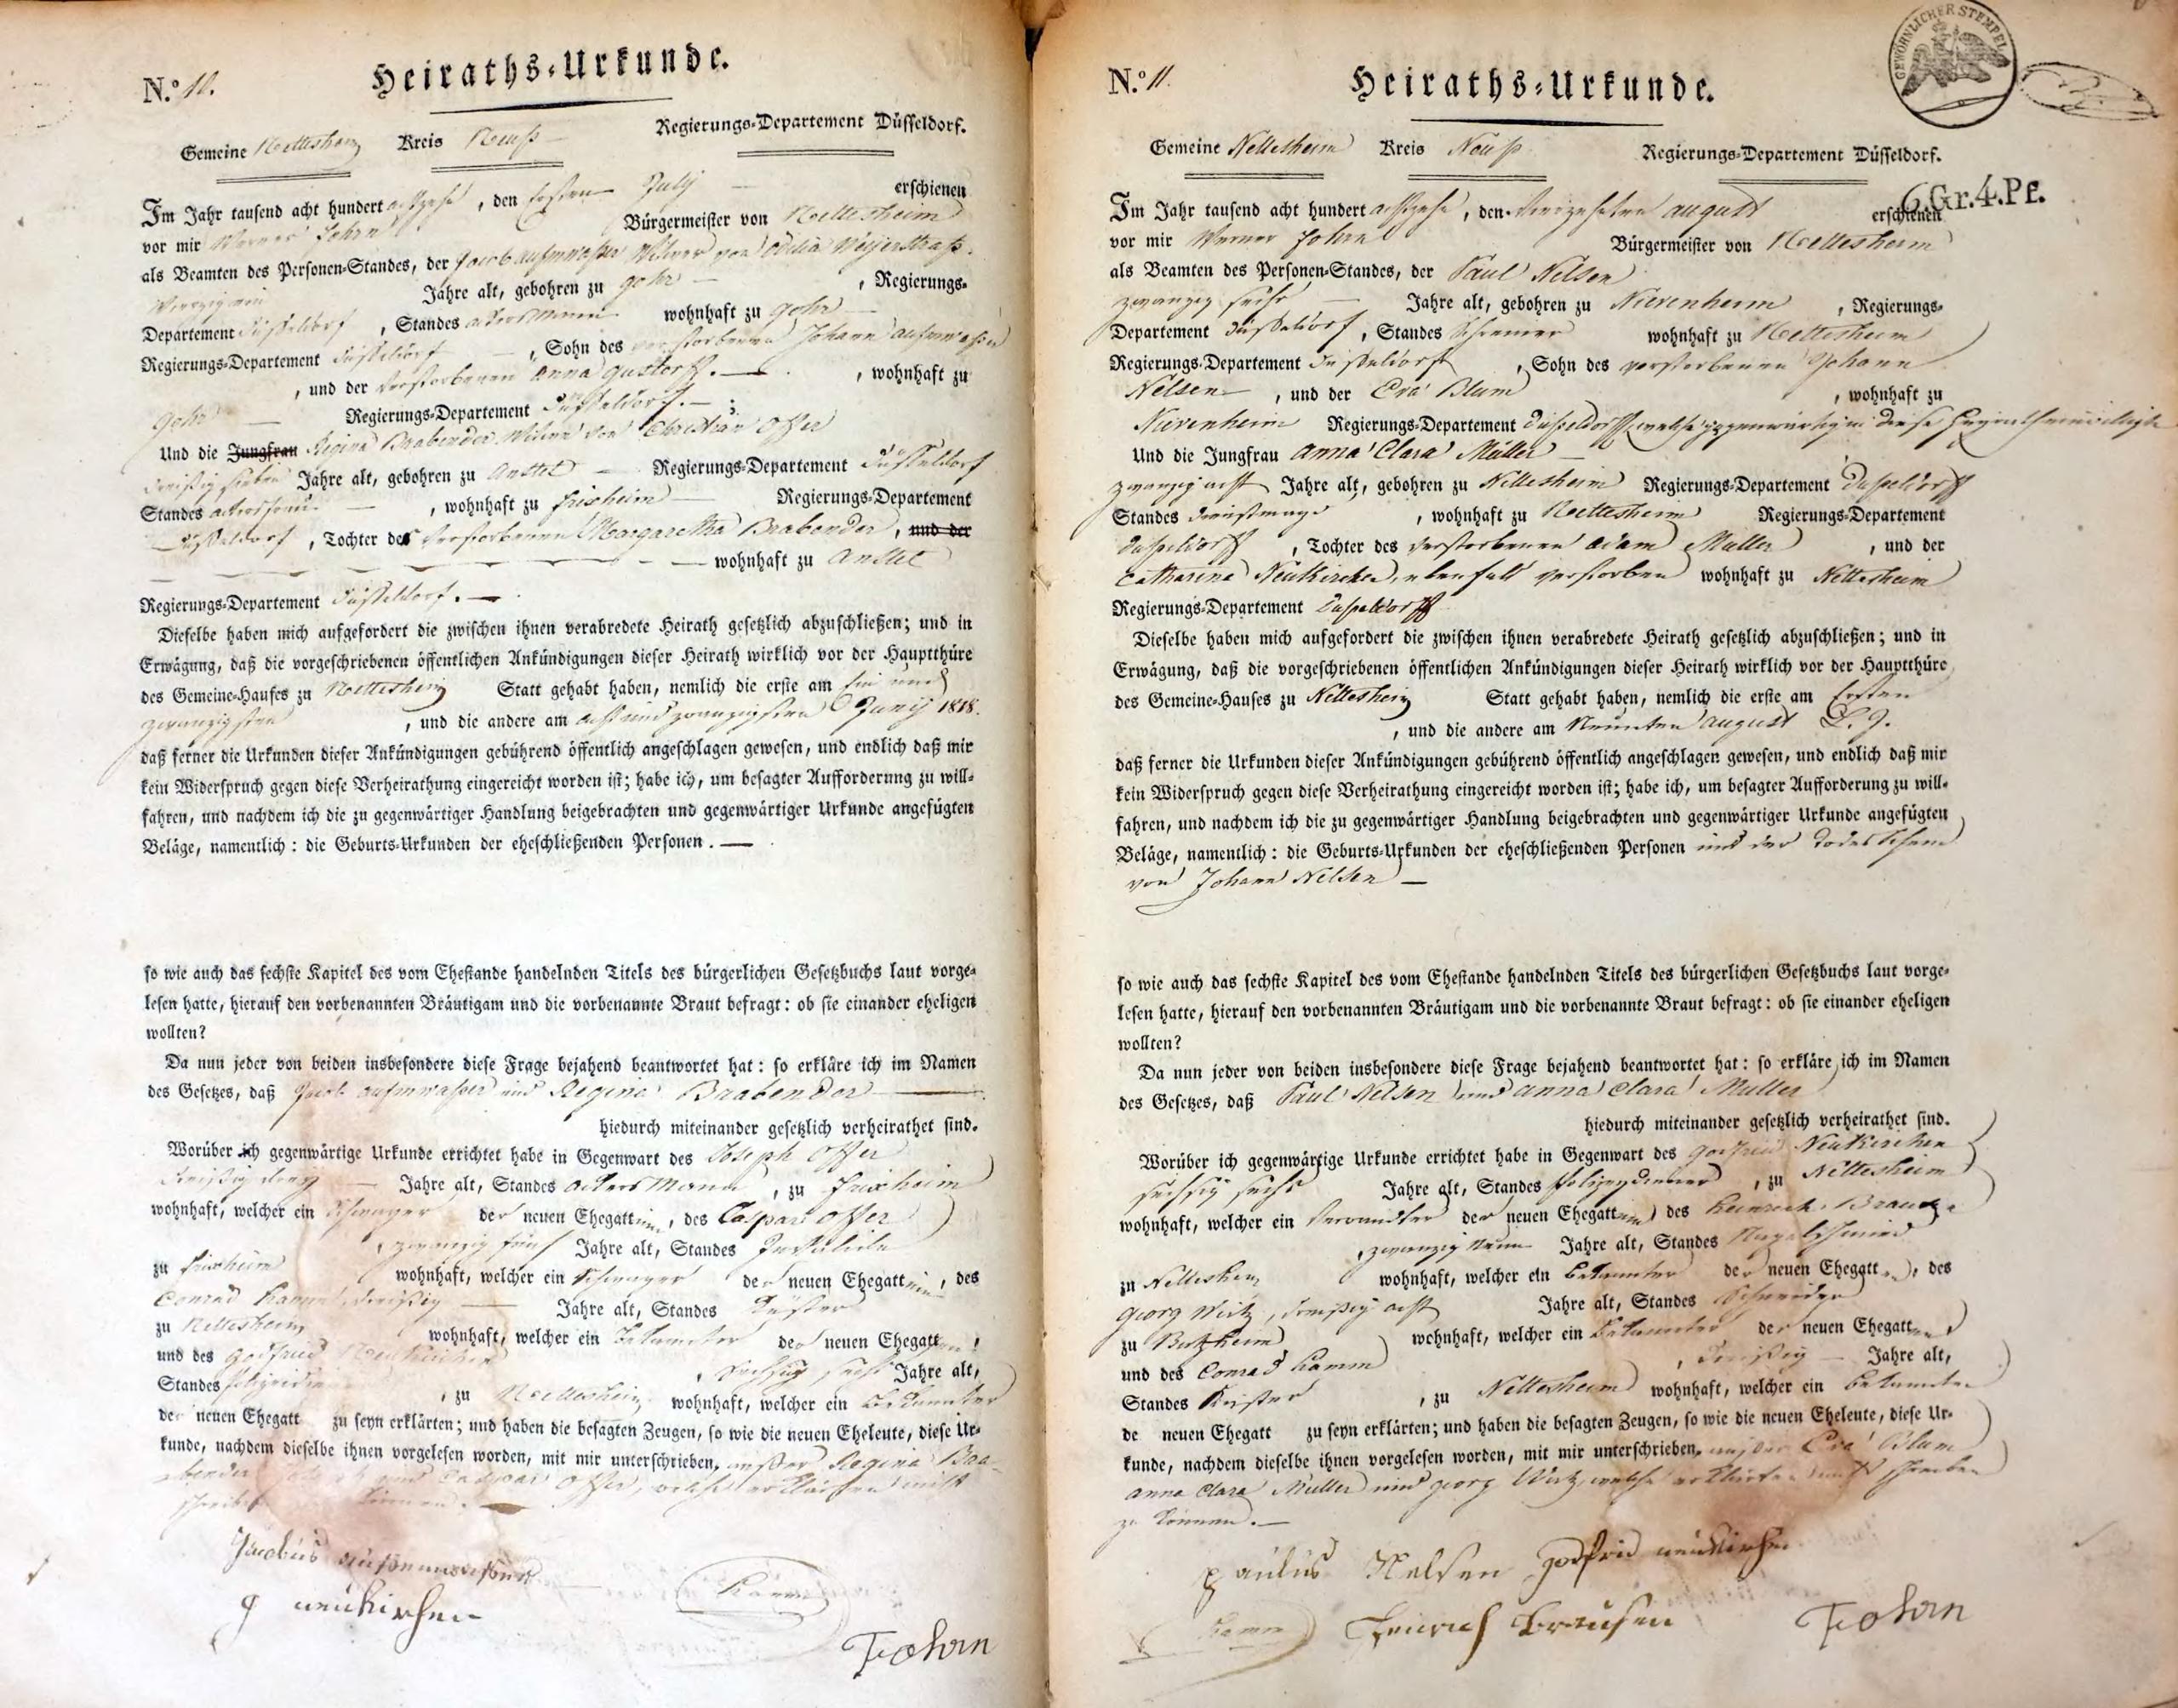 N.º 10. Heiraths-Urkunde.
Gemeine Nettesheim Kreis Neuß Regierungs-Departement Düsseldorf.
Im Jahr tausend acht hundert achtzehn, den Ersten July erschienen
vor mir Werner Johrn Bürgermeister von Nettesheim
als Beamten des Personen-Standes, der Jacob aufmwaßer Witwer von Odilia Weyerstraß.
Jahre alt, gebohren zu gohr, Regierungs-
Departement Düsseldorf, Standes ackersmann wohnhaft zu gohr
Regierungs-Departement Düsseldorf, Sohn des verstorbenen Johann aufmwaßer
, und der verstorbenen Anna gustorff. , wohnhaft zu
gohr Regierungs-Departement Düsseldorf. ;
Und die Jungfrau Regina Brabender Witwe von Christian Offer
dreißig sieben Jahre alt, gebohren zu Anstel Regierungs-Departement Düsseldorf
Standes ackersfrau, wohnhaft zu frixheim Regierungs-Departement
Düsseldorf, Tochter der verstorbenen Margaretha Brabender, und der
wohnhaft zu Anstel
Regierungs-Departement Düsseldorf.
Dieselbe haben mich aufgefordert die zwischen ihnen verabredete Heirath gesetzlich abzuschließen; und in
Erwägung, daß die vorgeschriebenen öffentlichen Ankündigungen dieser Heirath wirklich vor der Hauptthüre
des Gemeine-Hauses zu Nettesheim Statt gehabt haben, nemlich die erste am Ein und
zwanzigsten, und die andere am acht und zwanzigsten Juny 1818.
daß ferner die Urkunden dieser Ankündigungen gebührend öffentlich angeschlagen gewesen, und endlich daß mir
kein Widerspruch gegen diese Verheirathung eingereicht worden ist; habe ich, um besagter Aufforderung zu will-
fahren, und nachdem ich die zu gegenwärtiger Handlung beigebrachten und gegenwärtiger Urkunde angefügten
Beläge, namentlich: die Geburts-Urkunden der eheschließenden Personen.
so wie auch das sechste Kapitel des vom Ehestande handelnden Titels des bürgerlichen Gesetzbuchs laut vorge-
lesen hatte, hierauf den vorbenannten Bräutigam und die vorbenannte Braut befragt: ob sie einander eheligen
wollten?
Da nun jeder von beiden insbesondere diese Frage bejahend beantwortet hat: so erkläre ich im Namen
des Gesetzes, daß Jacob aufmwaßer und Regina Brabender
hiedurch miteinander gesetzlich verheirathet sind.
Worüber ich gegenwärtige Urkunde errichtet habe in Gegenwart des Joseph Offer
dreißig drey Jahre alt, Standes Ackersmann, zu frixheim
wohnhaft, welcher ein Schwager der neuen Ehegattinn, des Caspar Offer
, zwanzig fünf Jahre alt, Standes Invalide
zu frixheim wohnhaft, welcher ein Schwager der neuen Ehegattinn, des
Conrad Kamm, dreißig Jahre alt, Standes Küster
zu Nettesheim wohnhaft, welcher ein Bekannter der neuen Ehegatten,
und des Godfried Neukirchen, sechzig sechs Jahre alt,
Standes, zu Nettesheim wohnhaft, welcher ein Bekannter
der neuen Ehegatt zu seyn erklärten; und haben die besagten Zeugen, so wie die neuen Eheleute, diese Ur-
kunde, nachdem dieselbe ihnen vorgelesen worden, mit mir unterschrieben, außer Regina Bra-
bender und Caspar Offer, welche erklärten nicht
schreiben können.
Jacobus
g neukirchen Kamm
Johrn
N.º 11. Heiraths-Urkunde.
GEWÖHNLICHER STEMPEL
Gemeine Nettesheim Kreis Neuß Regierungs-Departement Düsseldorf.
6.Gr.4.Pf.
Im Jahr tausend acht hundert achtzehn, den vierzehnten august erschienen
vor mir Werner Johrn Bürgermeister von Nettesheim
als Beamten des Personen-Standes, der Paul Nelsen
zwanzig sechs Jahre alt, gebohren zu Nievenheim, Regierungs-
Departement Düsseldorf, Standes Schreiner wohnhaft zu Nettesheim
Regierungs-Departement Düsseldorf, Sohn des verstorbenen Johann
Nelsen, und der Eva Blum, wohnhaft zu
Nievenheim Regierungs-Departement Düsseldorff welche gegenwärtig in diese Heyrath einwilligte
Und die Jungfrau Anna Clara Müller
zwanzig acht Jahre alt, gebohren zu Nettesheim Regierungs-Departement Düsseldorff
Standes dienstmagd, wohnhaft zu Nettesheim Regierungs-Departement
Düsseldorff, Tochter des verstorbenen Adam Müller, und der
Catharina Neukirchen, ebenfalls verstorben wohnhaft zu Nettesheim
Regierungs-Departement Düsseldorff
Dieselbe haben mich aufgefordert die zwischen ihnen verabredete Heirath gesetzlich abzuschließen; und in
Erwägung, daß die vorgeschriebenen öffentlichen Ankündigungen dieser Heirath wirklich vor der Hauptthüre
des Gemeine-Hauses zu Nettesheim Statt gehabt haben, nemlich die erste am Ersten
, und die andere am Neunten august L. J.
daß ferner die Urkunden dieser Ankündigungen gebührend öffentlich angeschlagen gewesen, und endlich daß mir
kein Widerspruch gegen diese Verheirathung eingereicht worden ist; habe ich, um besagter Aufforderung zu will-
fahren, und nachdem ich die zu gegenwärtiger Handlung beigebrachten und gegenwärtiger Urkunde angefügten
Beläge, namentlich: die Geburts-Urkunden der eheschließenden Personen und der Todesschein
von Johann Nelsen
so wie auch das sechste Kapitel des vom Ehestande handelnden Titels des bürgerlichen Gesetzbuchs laut vorge-
lesen hatte, hierauf den vorbenannten Bräutigam und die vorbenannte Braut befragt: ob sie einander eheligen
wollten?
Da nun jeder von beiden insbesondere diese Frage bejahend beantwortet hat: so erkläre ich im Namen
des Gesetzes, daß Paul Nelsen und Anna Clara Müller
hiedurch miteinander gesetzlich verheirathet sind.
Worüber ich gegenwärtige Urkunde errichtet habe in Gegenwart des Godfried Neukirchen
sechsig sechs Jahre alt, Standes Polizeydiener, zu Nettesheim
wohnhaft, welcher ein Verwandter der neuen Ehegattinn, des Heinrich
, zwanzig neun Jahre alt, Standes Nagelschmied
zu Nettesheim wohnhaft, welcher ein Bekannter der neuen Ehegatten, des
Georg Wirtz, dreißig acht Jahre alt, Standes Schneider
zu Butzheim wohnhaft, welcher ein Bekannter der neuen Ehegatten
und des Conrad Kamm, dreißig Jahre alt,
Standes Küster, zu Nettesheim wohnhaft, welcher ein Bekannter
de neuen Ehegatt zu seyn erklärten; und haben die besagten Zeugen, so wie die neuen Eheleute, diese Ur-
kunde, nachdem dieselbe ihnen vorgelesen worden, mit mir unterschrieben, außer Eva Blum
Anna Clara Müller und georg Wirtz, welche erklärten nicht schreiben
zu können.
paulus Nelsen godfrid neukirchen
Kamm Heinrich Brausen Johrn